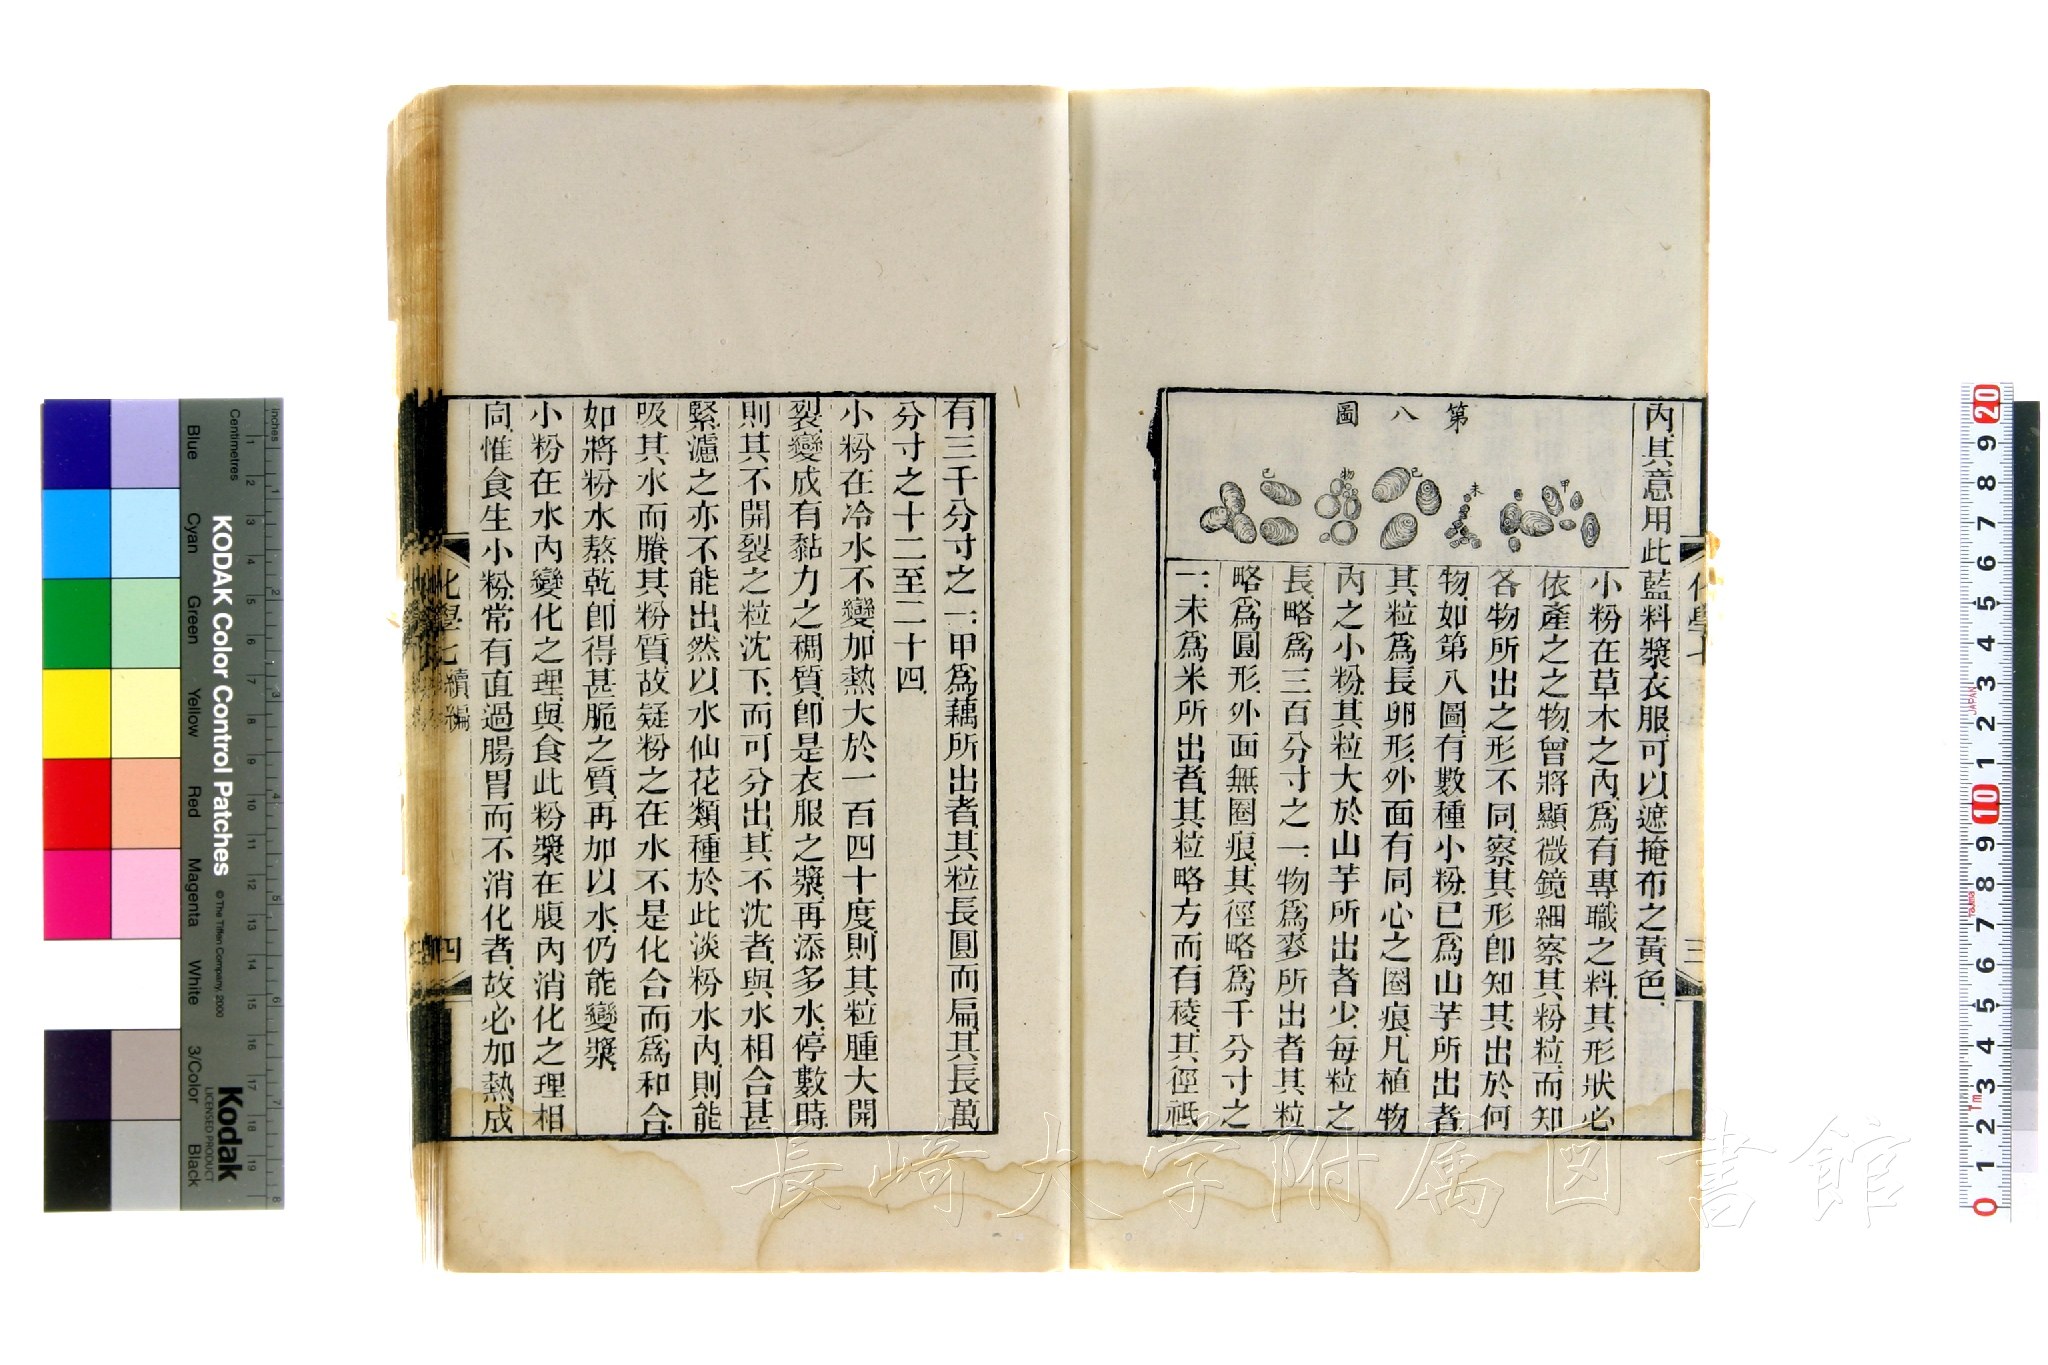 內、其意用此藍料漿衣服、可以遮掩布之黃色、
第八圖
甲
未
己
物
己
小粉在草木之內、爲有專職之料、其形狀必
依產之之物、曾將顯微鏡細察其粉粒、而知
各物所出之形不同、察其形卽知其出於何
物、如第八圖、有數種小粉、已爲山芋所出者、
其粒爲長卵形、外面有同心之圈痕、凡植物
內之小粉、其粒大於山芋所出者少、每粒之
長、略爲三百分寸之一、物爲麥所出者、其粒
略爲圓形、外面無圈痕、其徑略爲千分寸之
一、未爲米所出者、其粒略方而有稜、其徑祇
三
有三千分寸之一、甲爲藕所出者、其粒長圓而扁、其長萬
分寸之十二至二十四、
小粉在冷水不變、加熱大於一百四十度、則其粒腫大開
裂、變成有黏力之稠質、卽是衣服之漿、再添多水、停數時
則其不開裂之粒沈下、而可分出、其不沈者、與水相合甚
緊、濾之亦不能出、然以水仙花類、種於此淡粉水內、則能
吸其水而賸其粉質、故疑粉之在水、不是化合而爲和合、
如將粉水熬乾、卽得甚脆之質、再加以水、仍能變漿、
小粉在水內變化之理、與食此粉漿在腹內消化之理相
同、惟食生小粉、常有直過腸胃而不消化者、故必加熱成
化學七 續編
四
長崎大学附属図書館
KODAK Color Control Patches
© The Tiffen Company, 2000
Kodak
LICENSED PRODUCT
Blue Cyan Green Yellow Red Magenta White 3/Color Black
inches
Centimetres
JAPAN